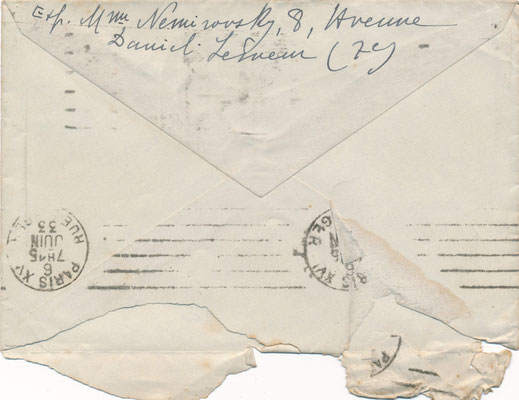 Exp. Mme Nemirovsky, 8, Avenue
Daniel Lesueur (7e)
PARIS XV
6
7H45
JUIN
33
RUE
GER
XVI
PA